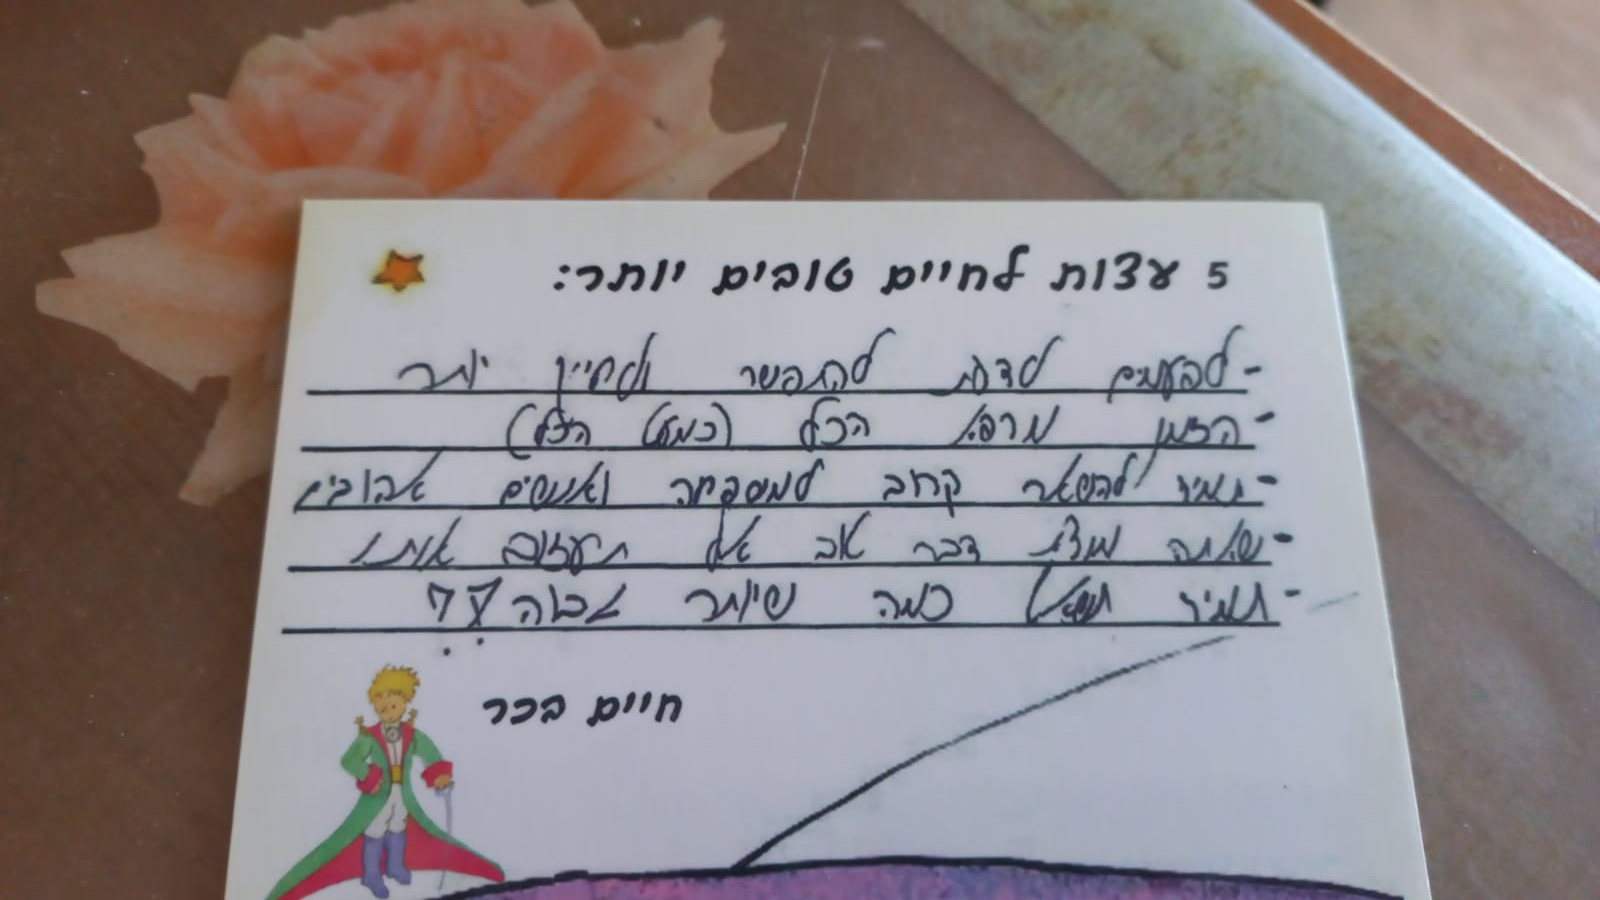 5 עצות לחיים טובים יותר:
-לפעמים לדעת להתפשר ולחייך יותר
-הזמן מרפא הכל (כמעט הכל)
-תמיד להשאר קרוב למשפחה ואנשים אהובים
-שאתה מוצא דבר טוב אל תעזוב אותו
-תמיד תשאל כמה שיותר גבוה
חיים בכר